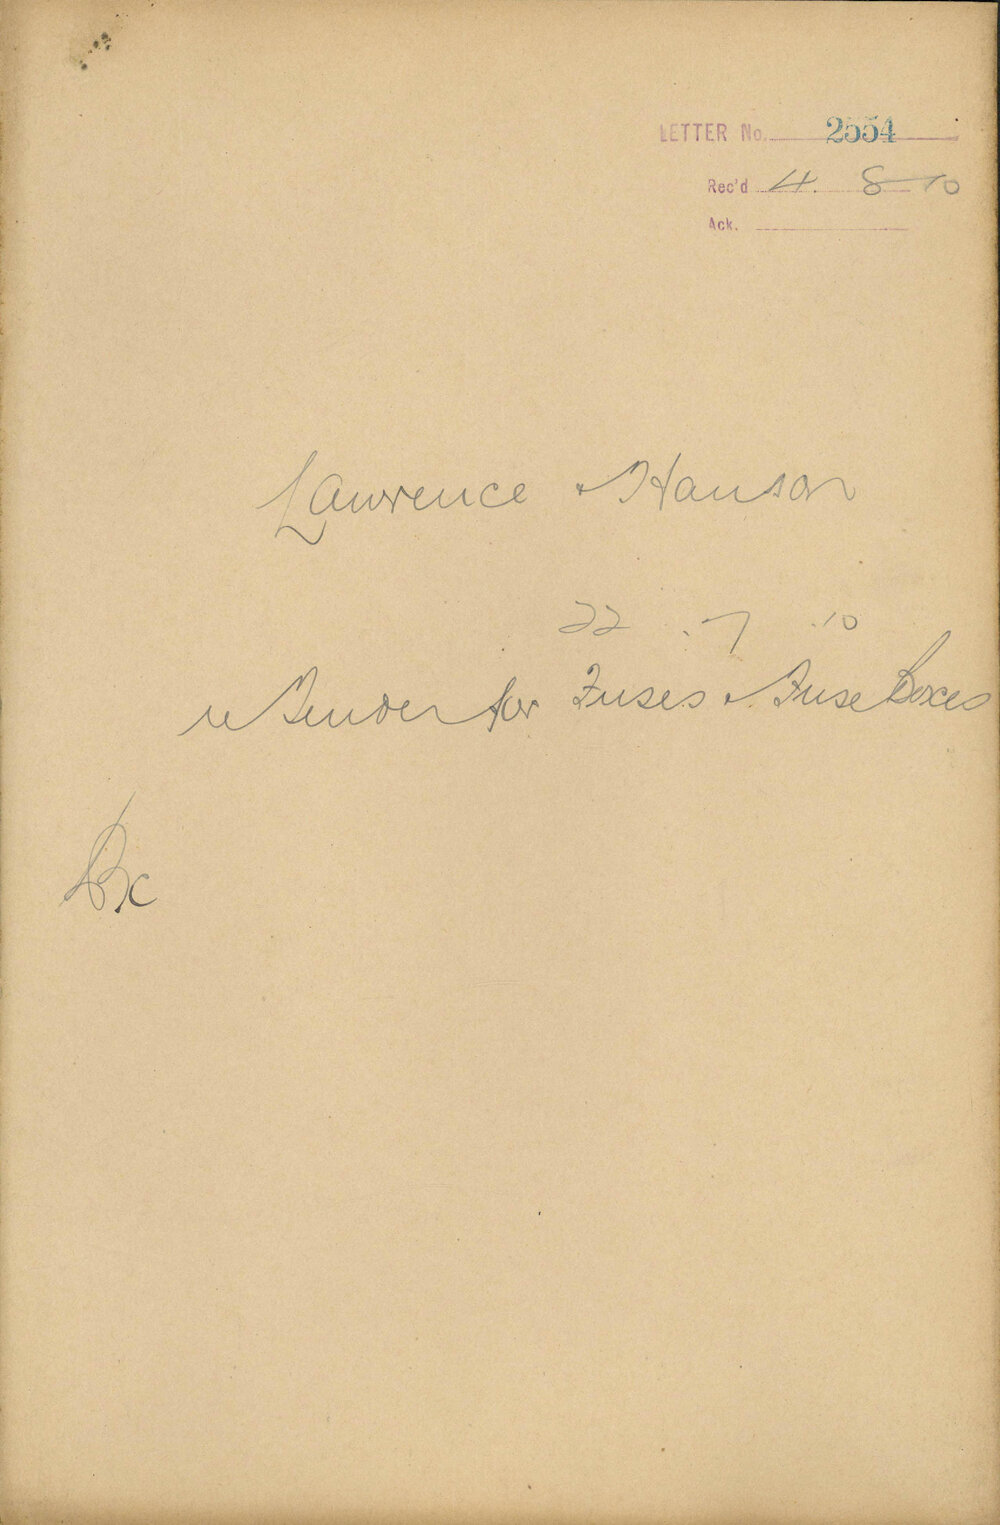 LETTER No. 2554
Rec'd 4. 8 10
Ack.
Lawrence & Hanson
22 . 7 .10
re Tender for Fuses & Fuse Boxes